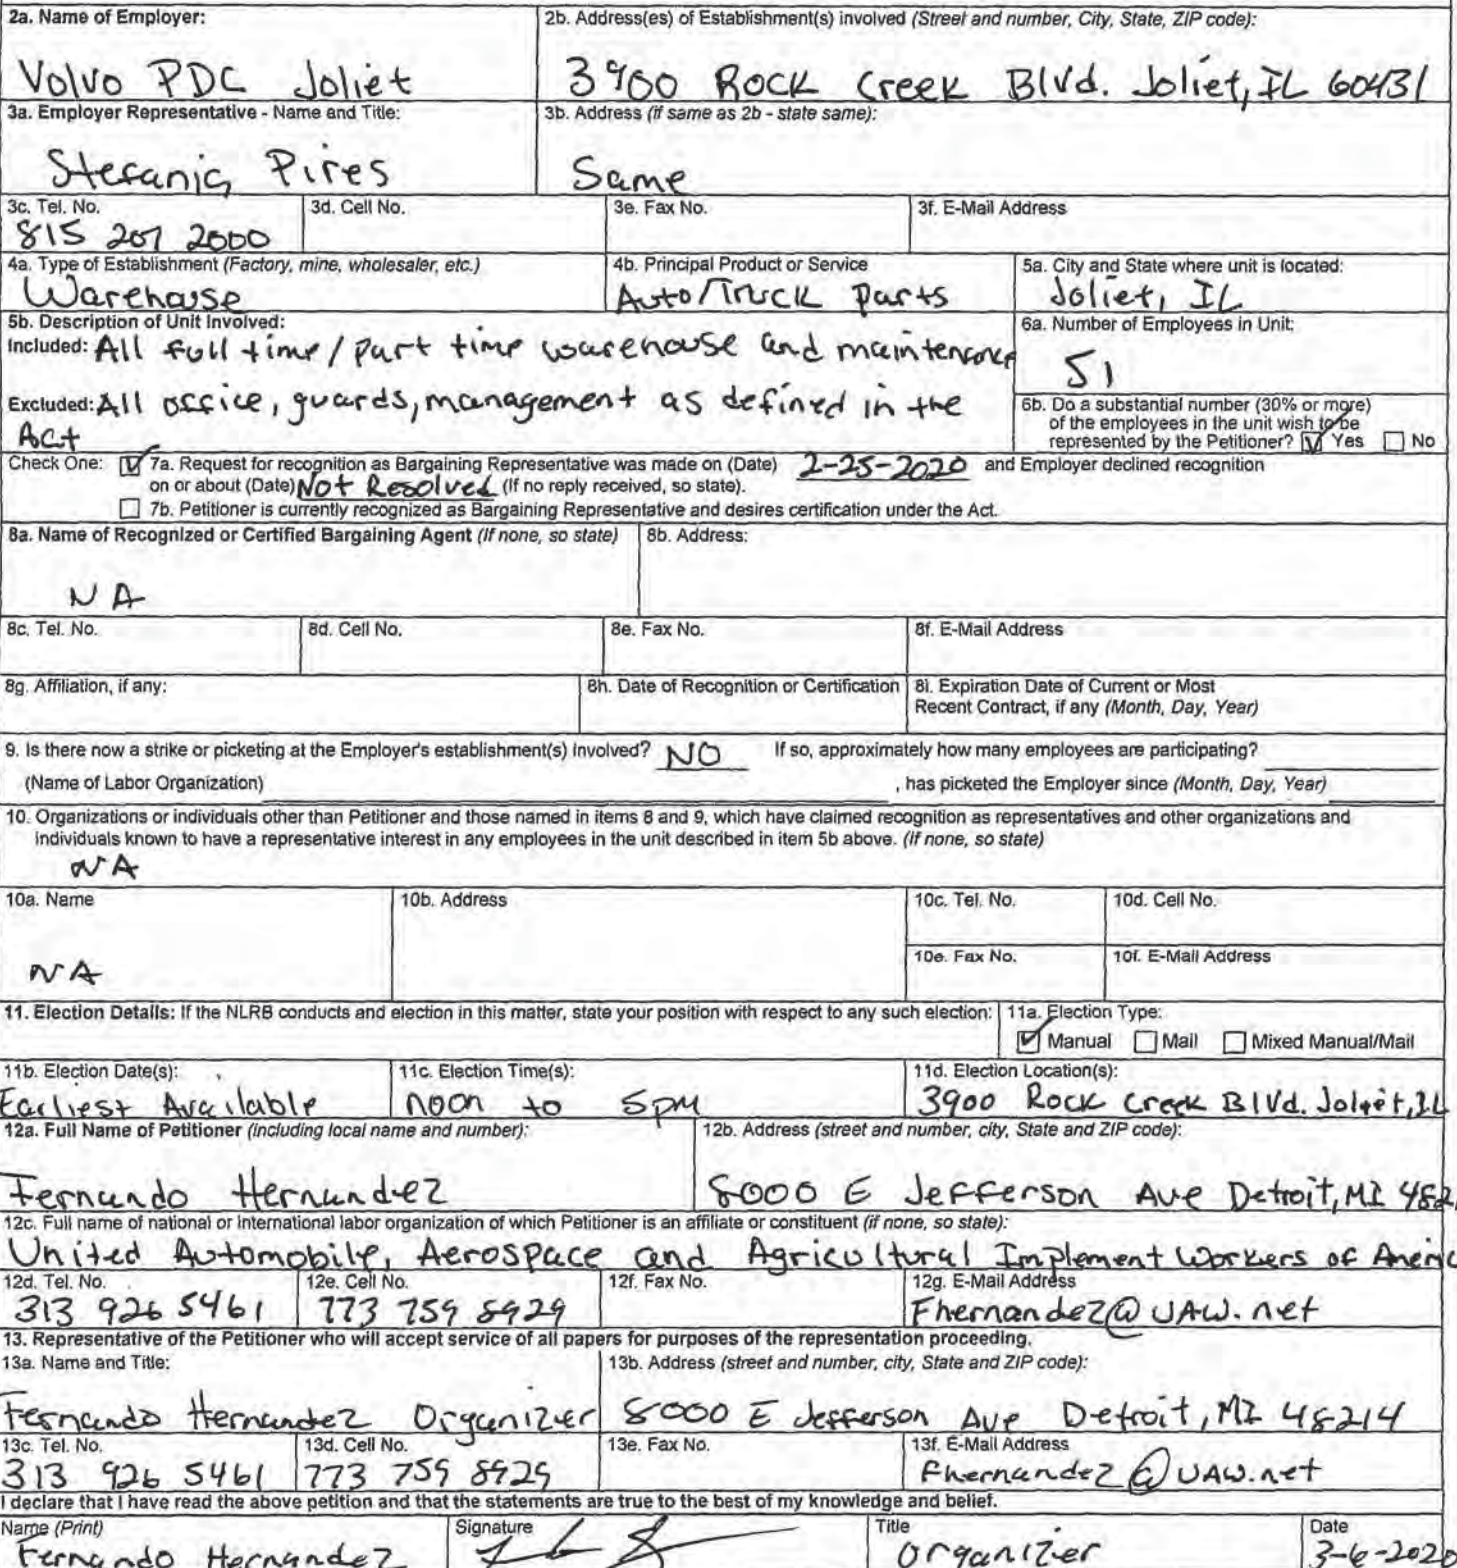 2a. Name of Employer: 2b. Address(es) of Establishment(s) involved (Street and number, City, State, ZIP code):
Volvo PDC Joliet 3900 Rock Creek Blvd. Joliet, IL 60431
3a. Employer Representative - Name and Title: 3b. Address (if same as 2b - state same):
Stefania Pires Same
3c. Tel. No. 3d. Cell No. 3e. Fax No. 3f. E-Mail Address
815 207 2000
4a. Type of Establishment (Factory, mine, wholesaler, etc.) 4b. Principal Product or Service 5a. City and State where unit is located:
Warehouse Auto/Truck parts Joliet, IL
5b. Description of Unit Involved: 6a. Number of Employees in Unit:
Included: All full time/part time warehouse and maintenance
51
Excluded: All office, guards, management as defined in the
Act
6b. Do a substantial number (30% or more)
of the employees in the unit wish to be
represented by the Petitioner? Yes No
Check One: 7a. Request for recognition as Bargaining Representative was made on (Date) 2-25-2020 and Employer declined recognition
on or about (Date) Not Resolved (If no reply received, so state).
7b. Petitioner is currently recognized as Bargaining Representative and desires certification under the Act.
8a. Name of Recognized or Certified Bargaining Agent (If none, so state) 8b. Address:
NA
8c. Tel. No. 8d. Cell No. 8e. Fax No. 8f. E-Mail Address
8g. Affiliation, if any: 8h. Date of Recognition or Certification 8i. Expiration Date of Current or Most
Recent Contract, if any (Month, Day, Year)
9. Is there now a strike or picketing at the Employer's establishment(s) involved? NO If so, approximately how many employees are participating?
(Name of Labor Organization) , has picketed the Employer since (Month, Day, Year)
10. Organizations or individuals other than Petitioner and those named in items 8 and 9, which have claimed recognition as representatives and other organizations and
individuals known to have a representative interest in any employees in the unit described in item 5b above. (If none, so state)
NA
10a. Name 10b. Address 10c. Tel. No. 10d. Cell No.
10e. Fax No. 10f. E-Mail Address
NA
11. Election Details: If the NLRB conducts and election in this matter, state your position with respect to any such election: 11a. Election Type:
Manual Mail Mixed Manual/Mail
11b. Election Date(s): 11c. Election Time(s): 11d. Election Location(s):
Earliest Available noon to 5pm 3900 Rock Creek Blvd. Joliet, IL
12a. Full Name of Petitioner (including local name and number): 12b. Address (street and number, city, State and ZIP code):
Fernando Hernandez 8000 E Jefferson Ave Detroit, MI 482
12c. Full name of national or international labor organization of which Petitioner is an affiliate or constituent (if none, so state):
United Automobile, Aerospace and Agricultural Implement Workers of Americ
12d. Tel. No. 12e. Cell No. 12f. Fax No. 12g. E-Mail Address
313 926 5461 773 759 8929 Fhernandez@UAW.net
13. Representative of the Petitioner who will accept service of all papers for purposes of the representation proceeding.
13a. Name and Title: 13b. Address (street and number, city, State and ZIP code):
Fernando Hernandez Organizer 8000 E Jefferson Ave Detroit, MI 48214
13c. Tel. No. 13d. Cell No. 13e. Fax No. 13f. E-Mail Address
313 926 5461 773 759 8929 Fhernandez@UAW.net
I declare that I have read the above petition and that the statements are true to the best of my knowledge and belief.
Name (Print) Signature Title Date
Fernando Hernandez Organizer 3-6-2020